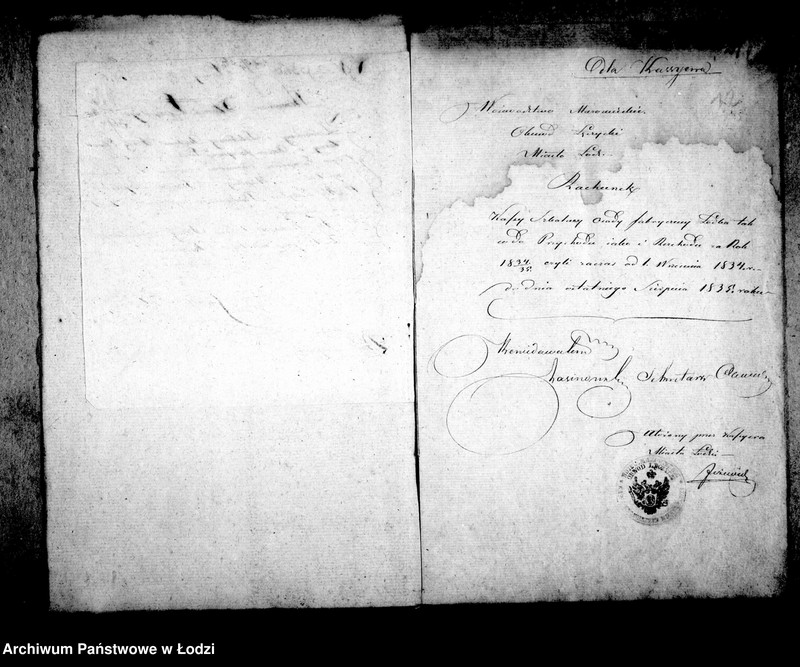 Dla Kassyera
Woiewództwo Mazowieckie
Obwód Łęczycki
Miasto Łódź
Rachunek
Kassy Szkolney Osady fabryczney Łodzi tak
co do Przychodu iako i Rozchodu za Rok
1834/35. czyli zaczas od 1. Września 1834. r.
do dnia ostatniego Sierpnia 1835. roku
Rewidowałem
Sekretarz
Ułożony przez Kassyera
Miasta Łodzi
OBWÓD
Archiwum Państwowe w Łodzi